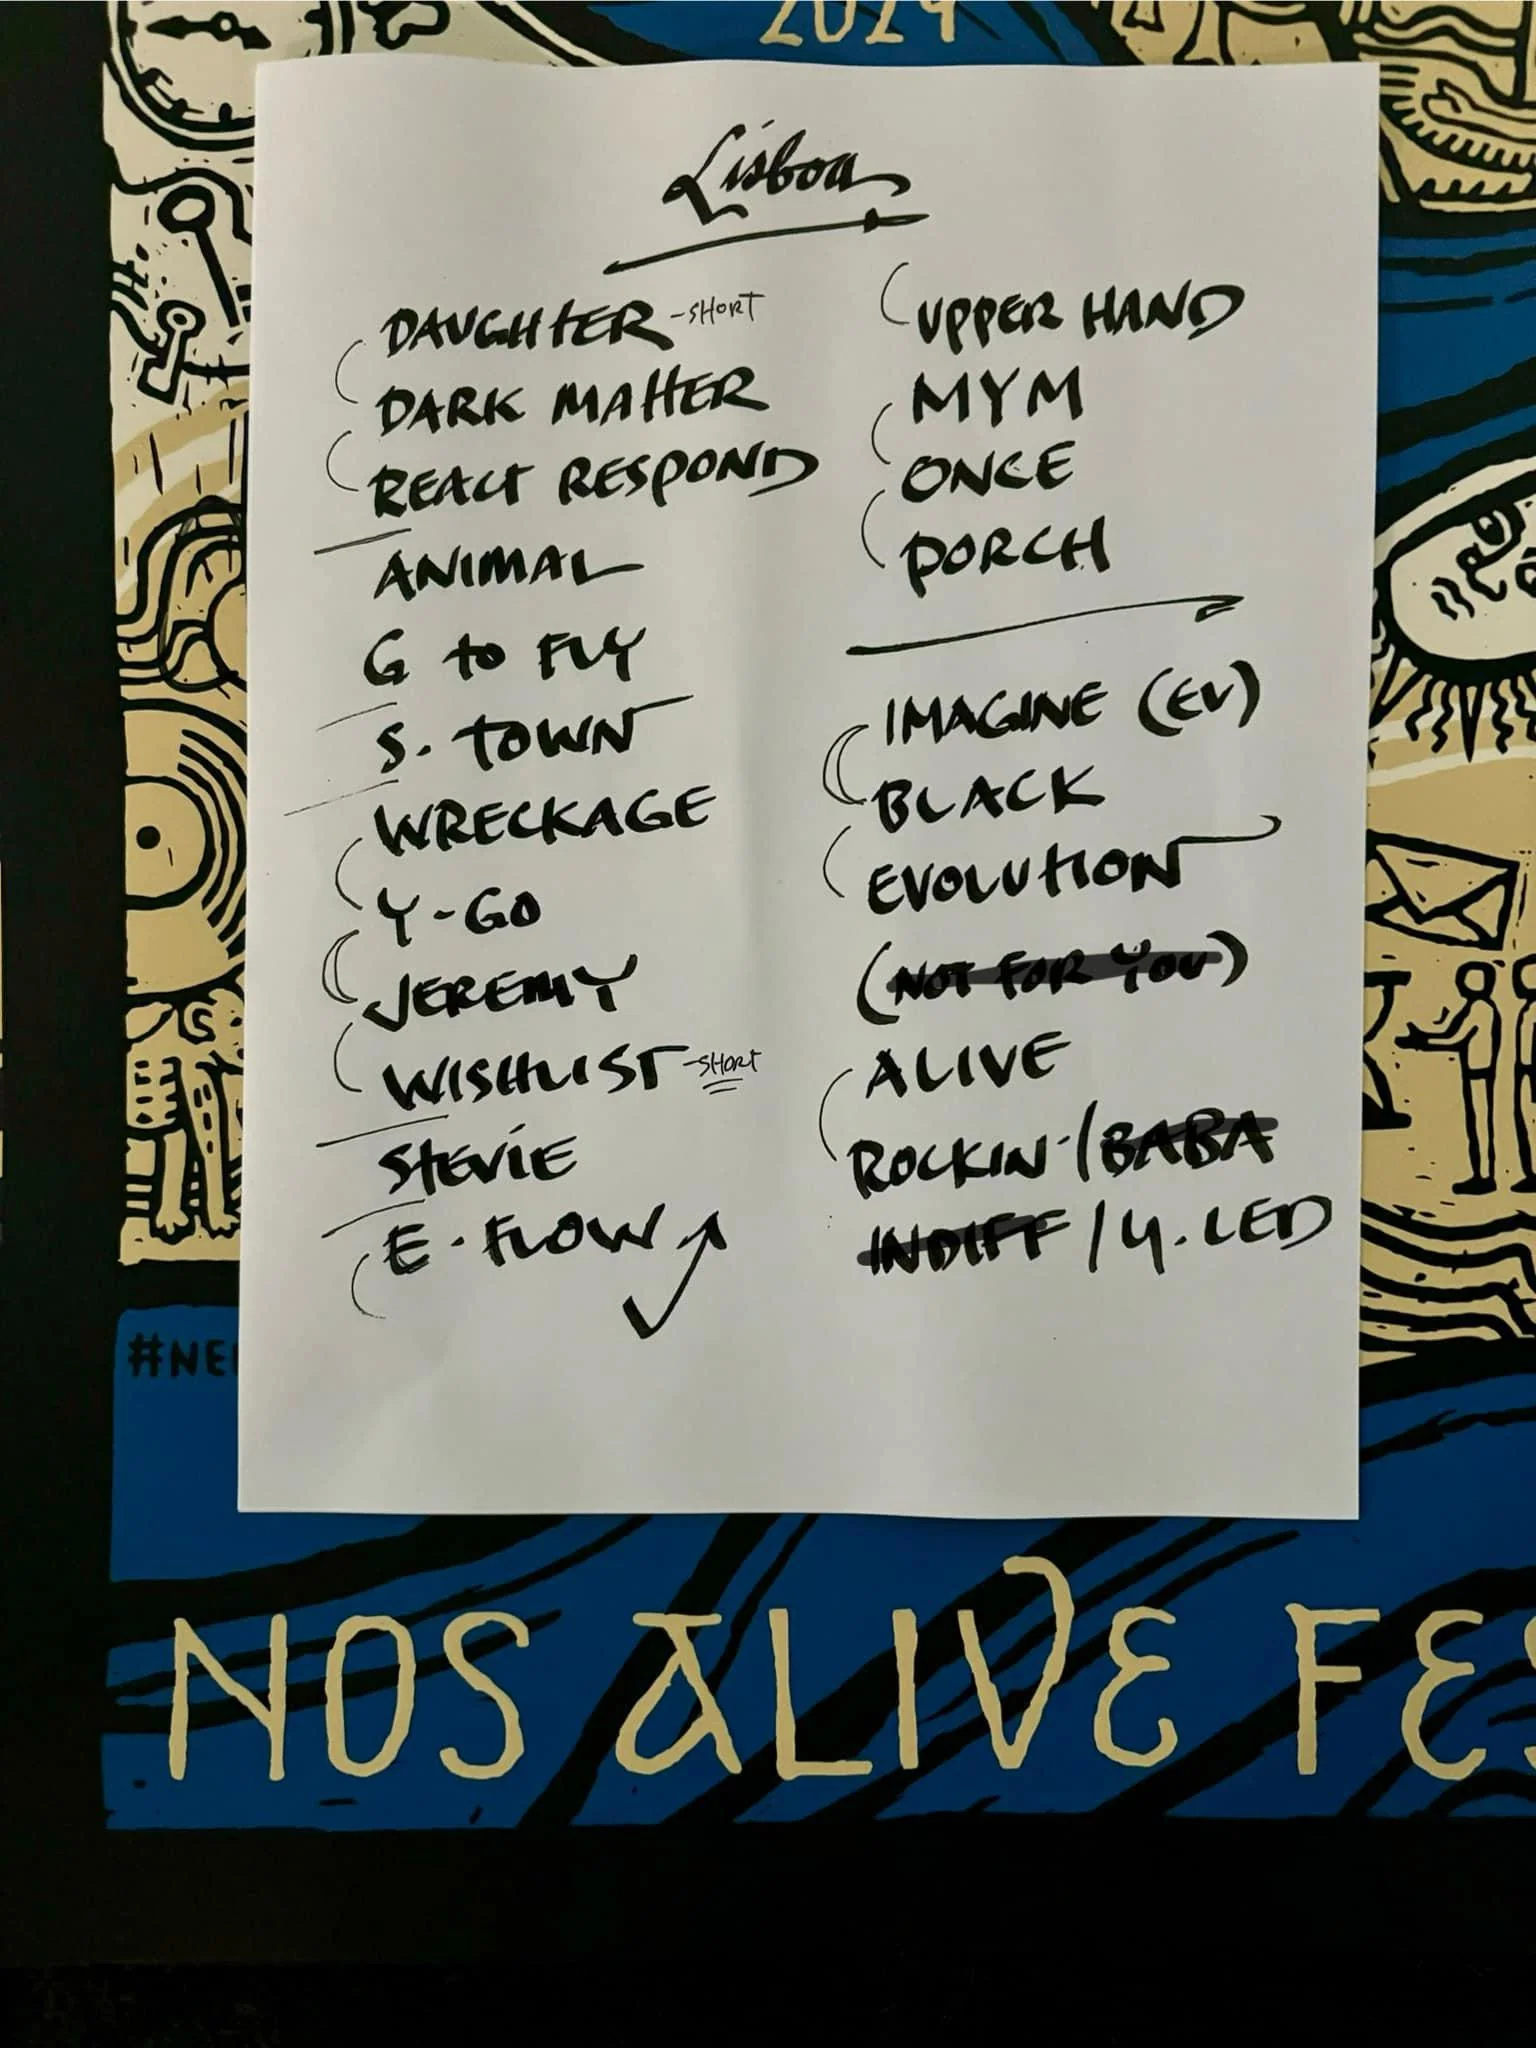 2024
Lisboa
DAUGHTER -SHORT
DARK MATTER
REACT RESPOND
ANIMAL
G to FLY
S. TOWN
WRECKAGE
Y-GO
JEREMY
WISHLIST -SHORT
STEVIE
E-FLOW
UPPER HAND
MYM
ONCE
PORCH
IMAGINE (EV)
BLACK
EVOLUTION
(NOT FOR YOU)
ALIVE
ROCKIN-/BABA
INDIFF / Y. LED
#NE
NOS ALIVE FES